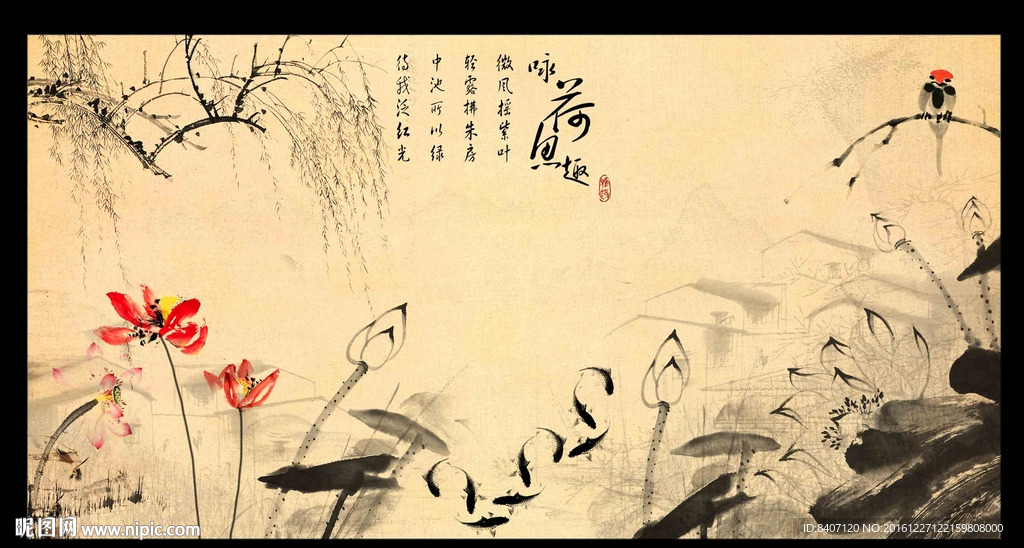 咏荷思趣
微风摇紫叶
轻露拂朱房
中池所以绿
待我泛红光
昵图网 www.nipic.com
ID:8407120 NO:20161227122159808000